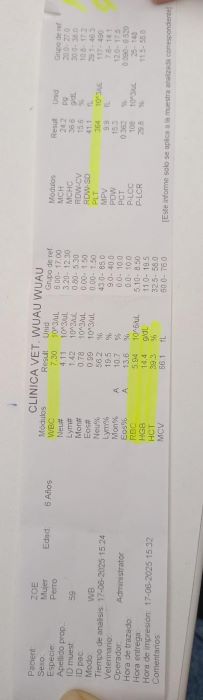 CLINICA VET. WUAU WUAU
Pacient: ZOE
Sexo: Mujer
Especie: Perro
Edad: 6 Años
Apellido prop.
ID muest: 59
ID pac.
Modo: WB
Tiempo de análisis: 17-06-2025 15:24
Veterinario:
Operador: Administrator
Hora de trazado
Hora entrega:
Hora de impresión: 17-06-2025 15:32
Comentarios:
Módulos Result Unid Grupo de ref.
WBC 7.30 10^3/uL 6.00- 17.00
Neu# 4.11 10^3/uL 3.20- 12.30
Lym# 1.42 10^3/uL 0.80- 5.30
Mon# 0.78 10^3/uL 0.00- 1.50
Eos# 0.99 10^3/uL 0.00- 1.50
Neu% 56.2 % 43.0- 85.0
Lym% 19.5 % 9.0- 40.0
Mon% A 10.7 % 0.0- 10.0
Eos% A 13.6 % 0.0- 10.0
RBC 5.94 10^6/uL 5.10- 8.50
HGB 14.4 g/dL 11.0- 19.5
HCT 39.3 % 32.5- 58.0
MCV 66.1 fL 60.0- 76.0
Módulos Result Unid Grupo de ref.
MCH 24.2 pg 20.0- 27.0
MCHC 36.6 g/dL 30.0- 38.0
RDW-CV 15.6 % 10.8- 17.2
RDW-SD 41.1 fL 29.1- 46.3
PLT 364 10^3/uL 117- 490
MPV 9.9 fL 7.6- 14.1
PDW 15.2 12.0- 17.5
PCT 0.362 % 0.090- 0.520
P-LCC 108 10^3/uL 25- 148
P-LCR 29.8 % 11.5- 58.8
[Este informe solo se aplica a la muestra analizada correspondiente]